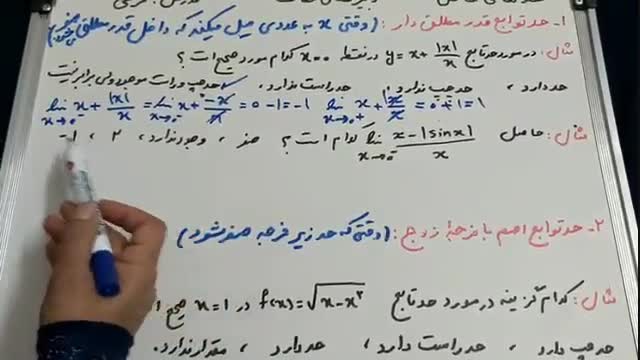 ۱- حد توابع قدر مطلق دار: (وقتی x به عددی میل میکند که داخل قدر مطلق صفر میشود)
مثال: در مورد حد تابع y = x + |x|/x در نقطه x=0 کدام مورد صحیح است؟
حد دارد، حد چپ ندارد، حد راست ندارد، حد چپ و راست موجود ولی برابر نیست
lim x→0⁻ x + |x|/x = lim x→0⁻ x + -x/x = 0 - 1 = -1 lim x→0⁺ x + x/x = 0 + 1 = 1
مثال: حاصل lim x→0⁻ x - |sin x|/x کدام است؟ صفر، وجود ندارد، ۲،
۲- حد توابع اصم با فرجهٔ زوج: (وقتی که حد زیر فرجه صفر شود)
مثال: کدام گزینه در مورد حد تابع f(x) = √x - x² در x = 1 صحیح
حد چپ دارد، حد راست دارد، حد دارد، مقدار ندارد.